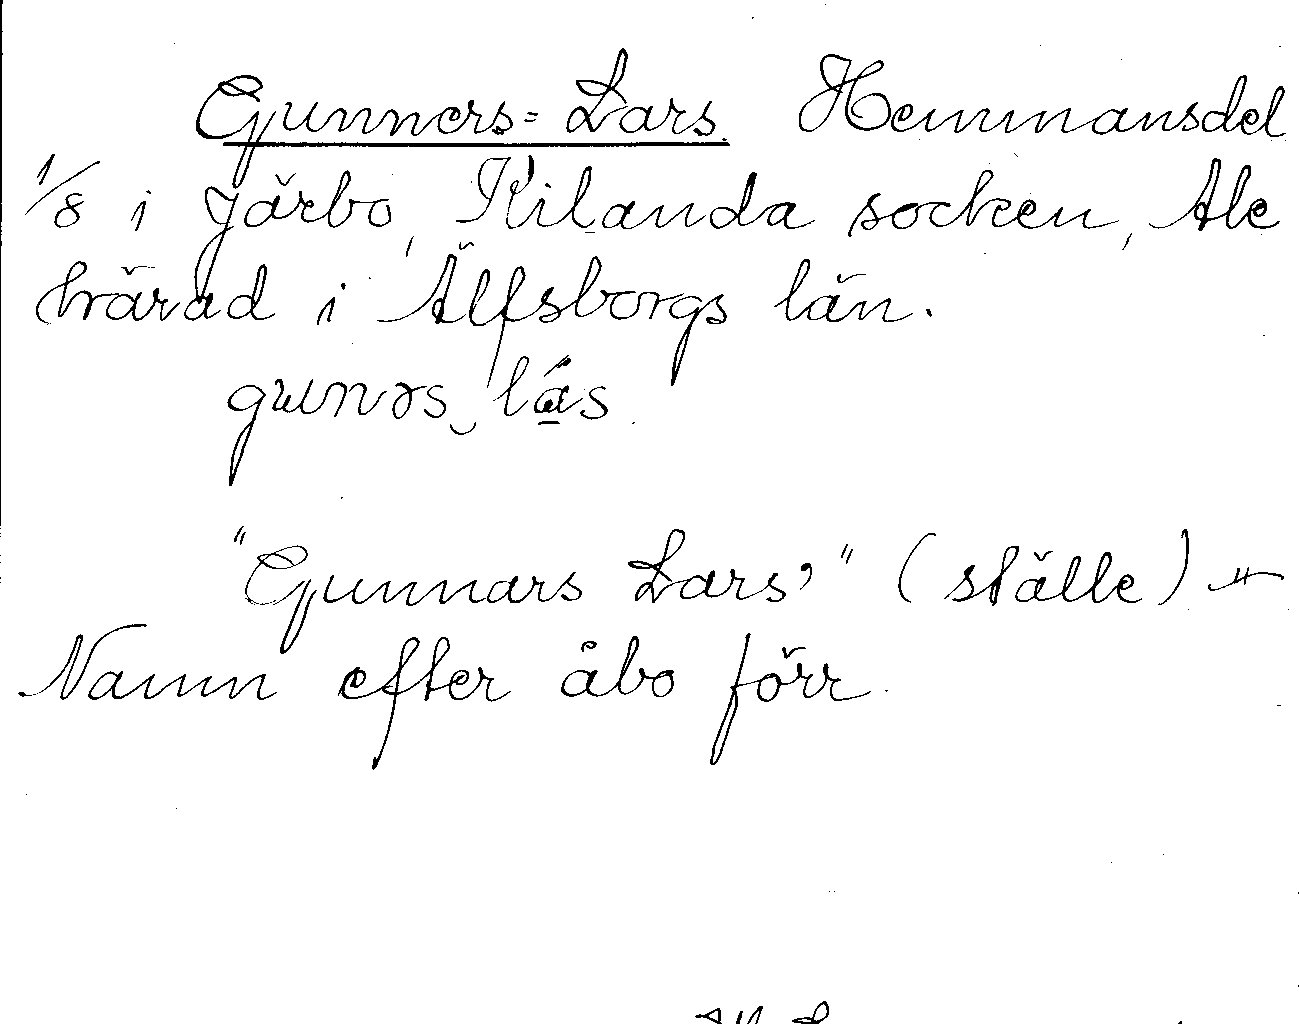 Gunners-Lars. Hemmansdel
1/8 i Järbo, Kilanda socken, Ale
härad i Älfsborgs län.
gunəs lás
"Gunnars Lars'" (ställe) –
Namn efter åbo förr.